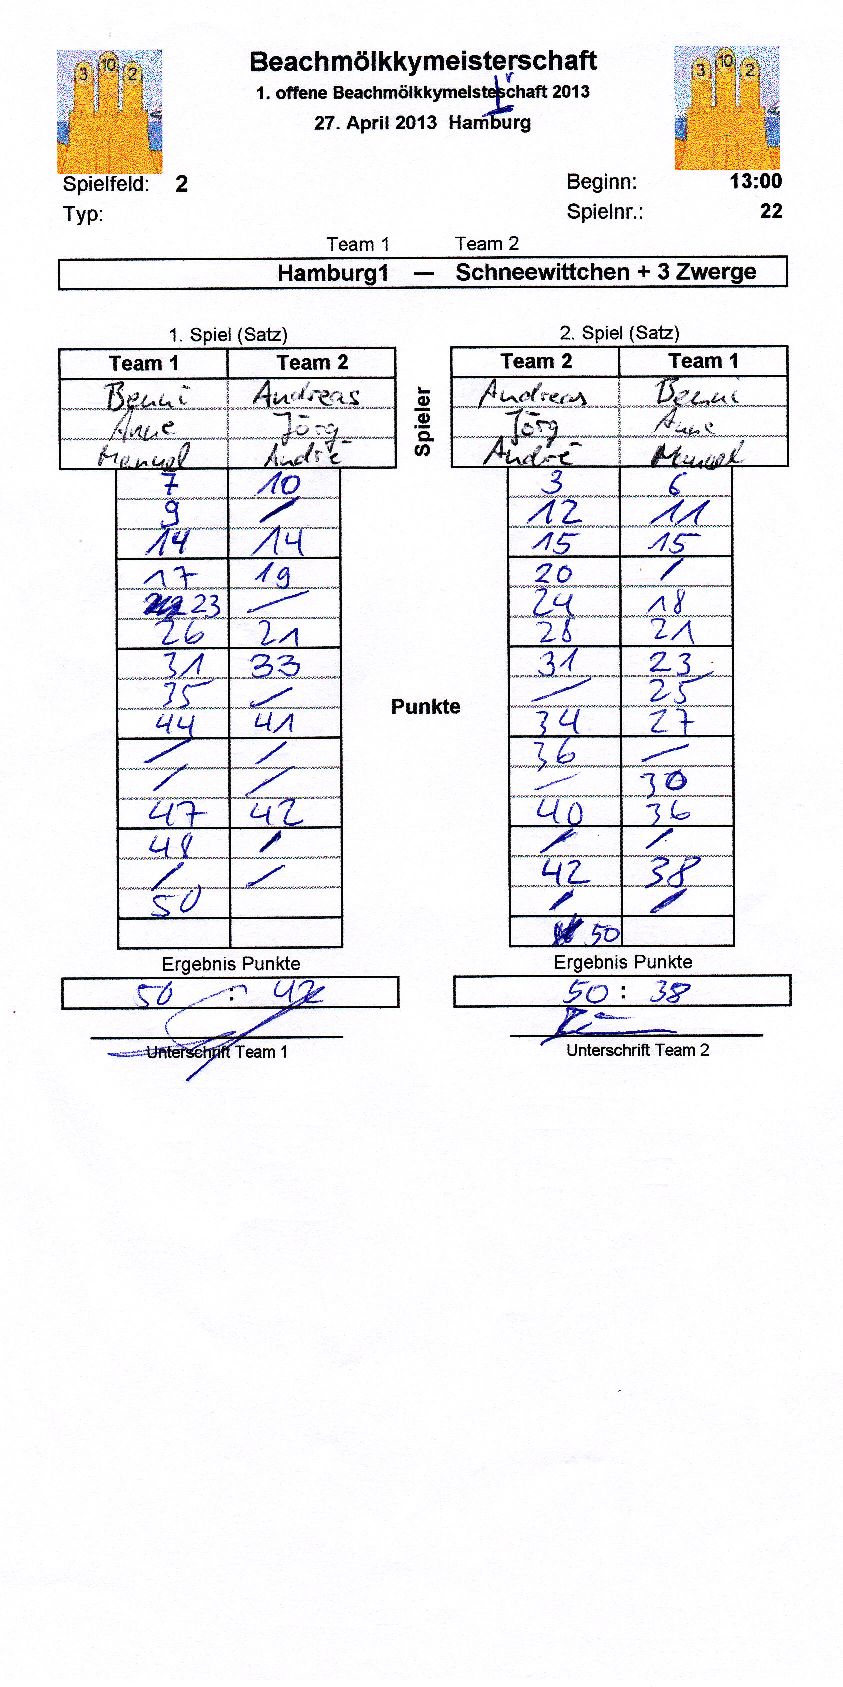 Beachmölkkymeisterschaft
1. offene Beachmölkkymeisteschaft 2013
r
27. April 2013 Hamburg
3 10 2
3 10 2
Spielfeld: 2 Beginn: 13:00
Typ: Spielnr.: 22
Team 1 Team 2
Hamburg1 — Schneewittchen + 3 Zwerge
1. Spiel (Satz) 2. Spiel (Satz)
Team 1 Team 2 Team 2 Team 1
Spieler
Benni Andreas Andreas Benni
Anne Jörg Jörg Anne
Manuel André André Manuel
7 10 3 6
9 / 12 11
14 14 15 15
17 19 20 /
23 / 24 18
26 21 28 21
31 33 31 23
35 / / 25
Punkte
44 41 34 27
/ / 36 /
/ / / 30
47 42 40 36
48 / / /
/ / 42 38
50 / /
50
Ergebnis Punkte Ergebnis Punkte
50 : 42 50 : 38
Unterschrift Team 1 Unterschrift Team 2